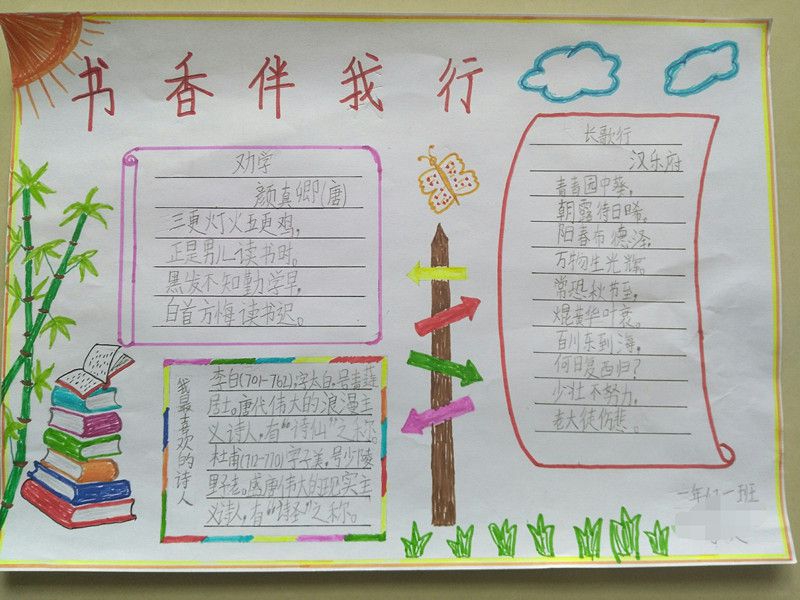 书香伴我行
劝学
颜真卿(唐)
三更灯火五更鸡,
正是男儿读书时。
黑发不知勤学早,
白首方悔读书迟。
我最喜欢的诗人
李白(701-762),字太白,号青莲
居士。唐代伟大的浪漫主
义诗人,有“诗仙”之称。
杜甫(712-770)字子美,号少陵
野老。盛唐伟大的现实主
义诗人,有“诗圣”之称。
长歌行
汉乐府
青青园中葵,
朝露待日晞,
阳春布德泽,
万物生光辉。
常恐秋节至,
焜黄华叶衰。
百川东到海,
何日复西归?
少壮不努力,
老大徒伤悲。
一年一班